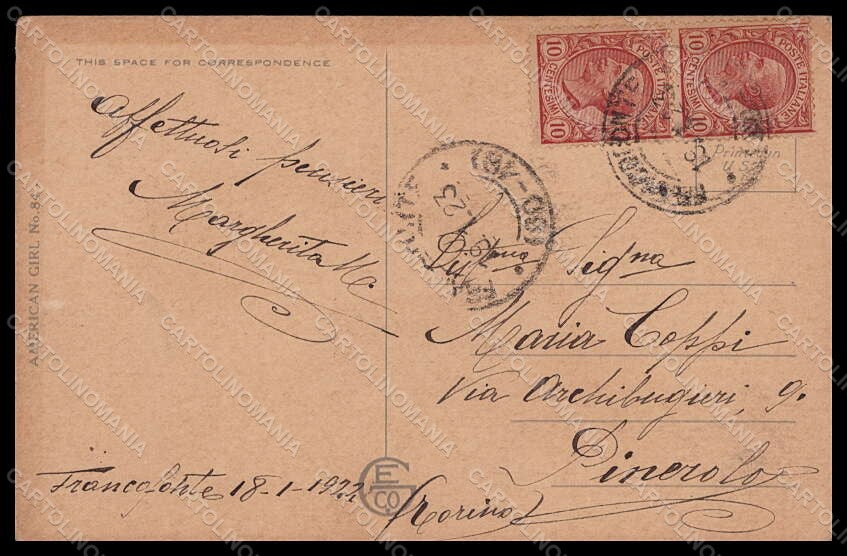 THIS SPACE FOR CORRESPONDENCE
Affettuosi pensieri
Margherita
Francofonte 18-1-1922
AMERICAN GIRL No. 84
EGCO
10 CENTESIMI 10
POSTE ITALIANE
10 CENTESIMI 10
POSTE ITALIANE
Printed in
Gent.ma Sig.na
Maria Coppi
Via Archibugieri, 9.
Pinerolo
(Torino)
CARTOLINOMANIA